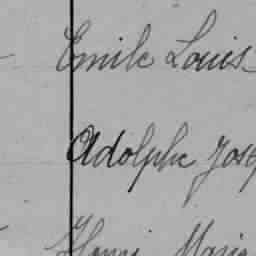 Emile Louis
Adolphe Jose
Henri Marie